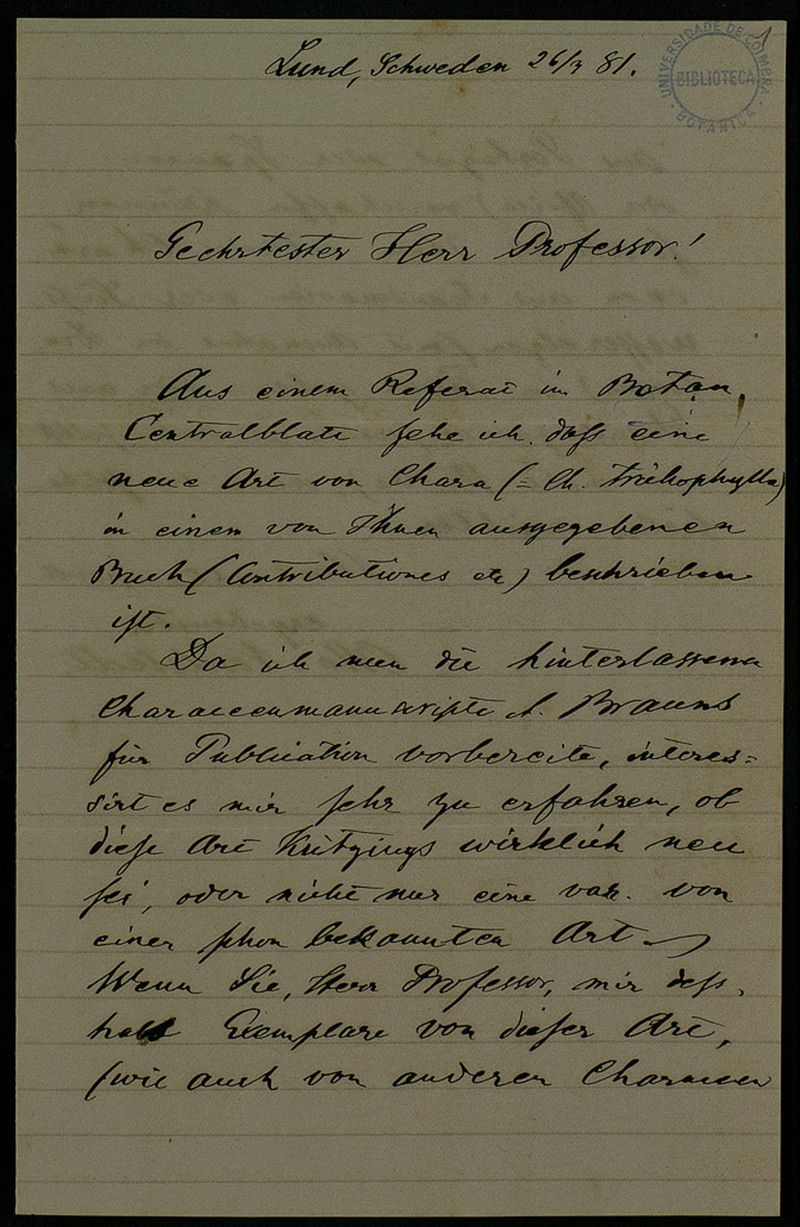 1
UNIVERSIDADE DE COIMBRA
BIBLIOTECA
BOTANICA
Lund, Schweden 26/3 81.
Geehrtester Herr Professor!
Aus einem Referat im Botan.
Centralblatt sehe ich dass eine
neue Art von Chara (= Ch. trichophylla)
in einem von Ihnen ausgegebenen
Buch (Contributiones etc) beschrieben
ist.
Da ich nun die hinterlassenen
Characeenmanuscripte A. Brauns
für Publication vorbereite, interes=
sirt es mir sehr zu erfahren, ob
diese Art Kützings wirklich neu
sei, oder nicht nur eine var. von
einer schon bekannten Art.
Wenn Sie, Herr Professor, mir dess-
halb Exemplare von dieser Art,
(wie auch von anderen Characeen